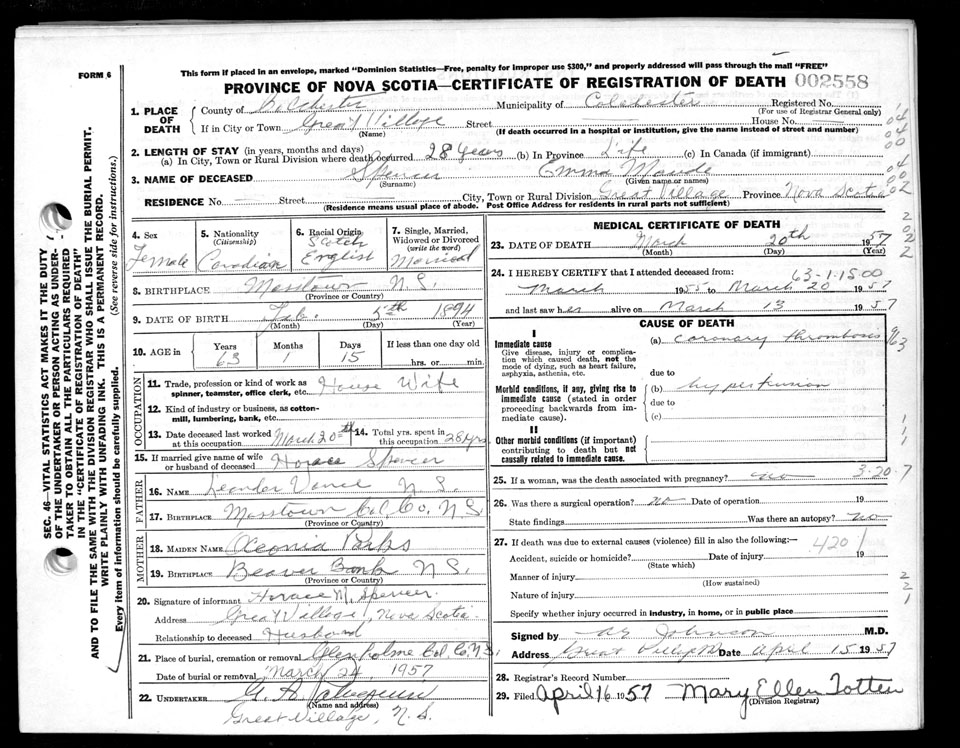 FORM 6
This form if placed in an envelope, marked "Dominion Statistics—Free, penalty for improper use $300," and properly addressed will pass through the mail "FREE"
PROVINCE OF NOVA SCOTIA—CERTIFICATE OF REGISTRATION OF DEATH 002558
1. PLACE OF DEATH
County of Colchester Municipality of Colchester Registered No.
(For use of Registrar General only)
If in City or Town Great Village Street House No.
(Name) (If death occurred in a hospital or institution, give the name instead of street and number)
2. LENGTH OF STAY (in years, months and days)
(a) In City, Town or Rural Division where death occurred 28 years (b) In Province Life (c) In Canada (if immigrant)
3. NAME OF DECEASED Spencer Emma Maude
(Surname) (Given name or names)
RESIDENCE No. Street City, Town or Rural Division Great Village Province Nova Scotia
(Residence means usual place of abode. Post Office Address for residents in rural parts not sufficient)
4. Sex
Female
5. Nationality
(Citizenship)
Canadian
6. Racial Origin
Scotch
English
7. Single, Married, Widowed or Divorced
(write the word)
Married
8. BIRTHPLACE Masstown N.S.
(Province or Country)
9. DATE OF BIRTH Feb. 5th 1894
(Month) (Day) (Year)
10. AGE in Years Months Days If less than one day old
63 1 15 hrs. or min.
OCCUPATION
11. Trade, profession or kind of work as spinner, teamster, office clerk, etc. House Wife
12. Kind of industry or business, as cotton-mill, lumbering, bank, etc.
13. Date deceased last worked at this occupation March 20th 14. Total yrs. spent in this occupation 28 yrs
15. If married give name of wife or husband of deceased Horace Spencer
FATHER
16. NAME Leander Vance N.S.
17. BIRTHPLACE Masstown Col. Co. N.S.
(Province or Country)
MOTHER
18. MAIDEN NAME Parks
19. BIRTHPLACE Beaver Bank N.S.
(Province or Country)
20. Signature of informant Horace M. Spencer
Address Great Village, Nova Scotia
Relationship to deceased Husband
21. Place of burial, cremation or removal Glenholme Col. Co. N.S.
Date of burial or removal March 24 1957
22. UNDERTAKER G.
(Name and address)
Great Village, N.S.
MEDICAL CERTIFICATE OF DEATH
23. DATE OF DEATH March 20th 1957
(Month) (Day) (Year)
63-1-15-00
24. I HEREBY CERTIFY that I attended deceased from:
March 1955 to March 20 1957
and last saw her alive on March 13 1957
CAUSE OF DEATH
I
Immediate cause
Give disease, injury or complication which caused death, not the mode of dying, such as heart failure, asphyxia, asthenia, etc.
(a) coronary thrombosis
due to
Morbid conditions, if any, giving rise to immediate cause (stated in order proceeding backwards from immediate cause).
(b) hypertension
due to
(c)
II
Other morbid conditions (if important) contributing to death but not causally related to immediate cause.
25. If a woman, was the death associated with pregnancy? no 3-20-7
26. Was there a surgical operation? no Date of operation 19
State findings Was there an autopsy? no
27. If death was due to external causes (violence) fill in also the following:— 4201
Accident, suicide or homicide? Date of injury 19
(State which)
Manner of injury
(How sustained)
Nature of injury
Specify whether injury occurred in industry, in home, or in public place
Signed by Johnson M.D.
Address Great Village Date April 15 1957
28. Registrar's Record Number
29. Filed April 16 1957 Mary Ellen Totten
(Division Registrar)
SEC. 46—VITAL STATISTICS ACT MAKES IT THE DUTY
OF THE UNDERTAKER OR PERSON ACTING AS UNDER-
TAKER TO OBTAIN ALL THE PARTICULARS REQUIRED
IN THE "CERTIFICATE OF REGISTRATION OF DEATH"
AND TO FILE THE SAME WITH THE DIVISION REGISTRAR WHO SHALL ISSUE THE BURIAL PERMIT.
WRITE PLAINLY WITH UNFADING INK. THIS IS A PERMANENT RECORD.
Every item of information should be carefully supplied. (See reverse side for instructions.)